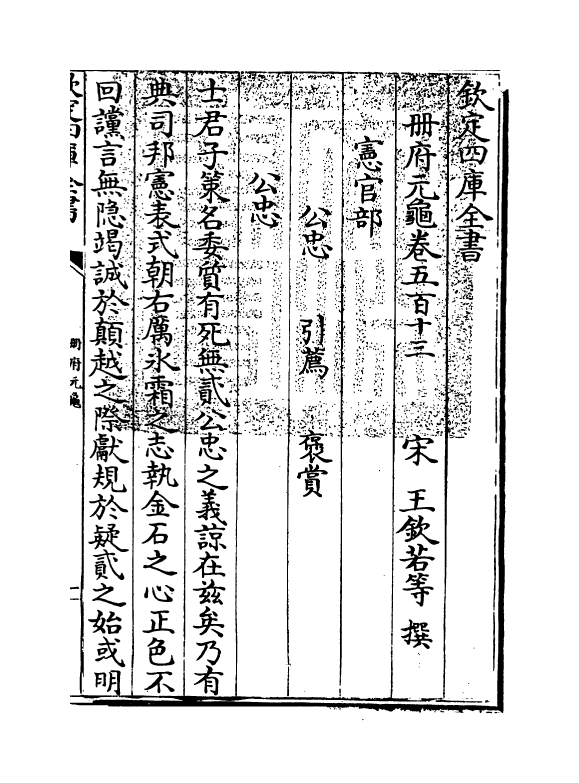 欽定四庫全書
册府元龜卷五百十三　宋　王欽若等　撰
憲官部
公忠　引薦　褒賞
公忠
士君子策名委質有死無貳公忠之義諒在兹矣乃有
典司邦憲表式朝右厲氷霜之志執金石之心正色不
回讜言無隐竭誠於顛越之際獻規於疑貳之始或明
欽定四庫全書
册府元龜
一